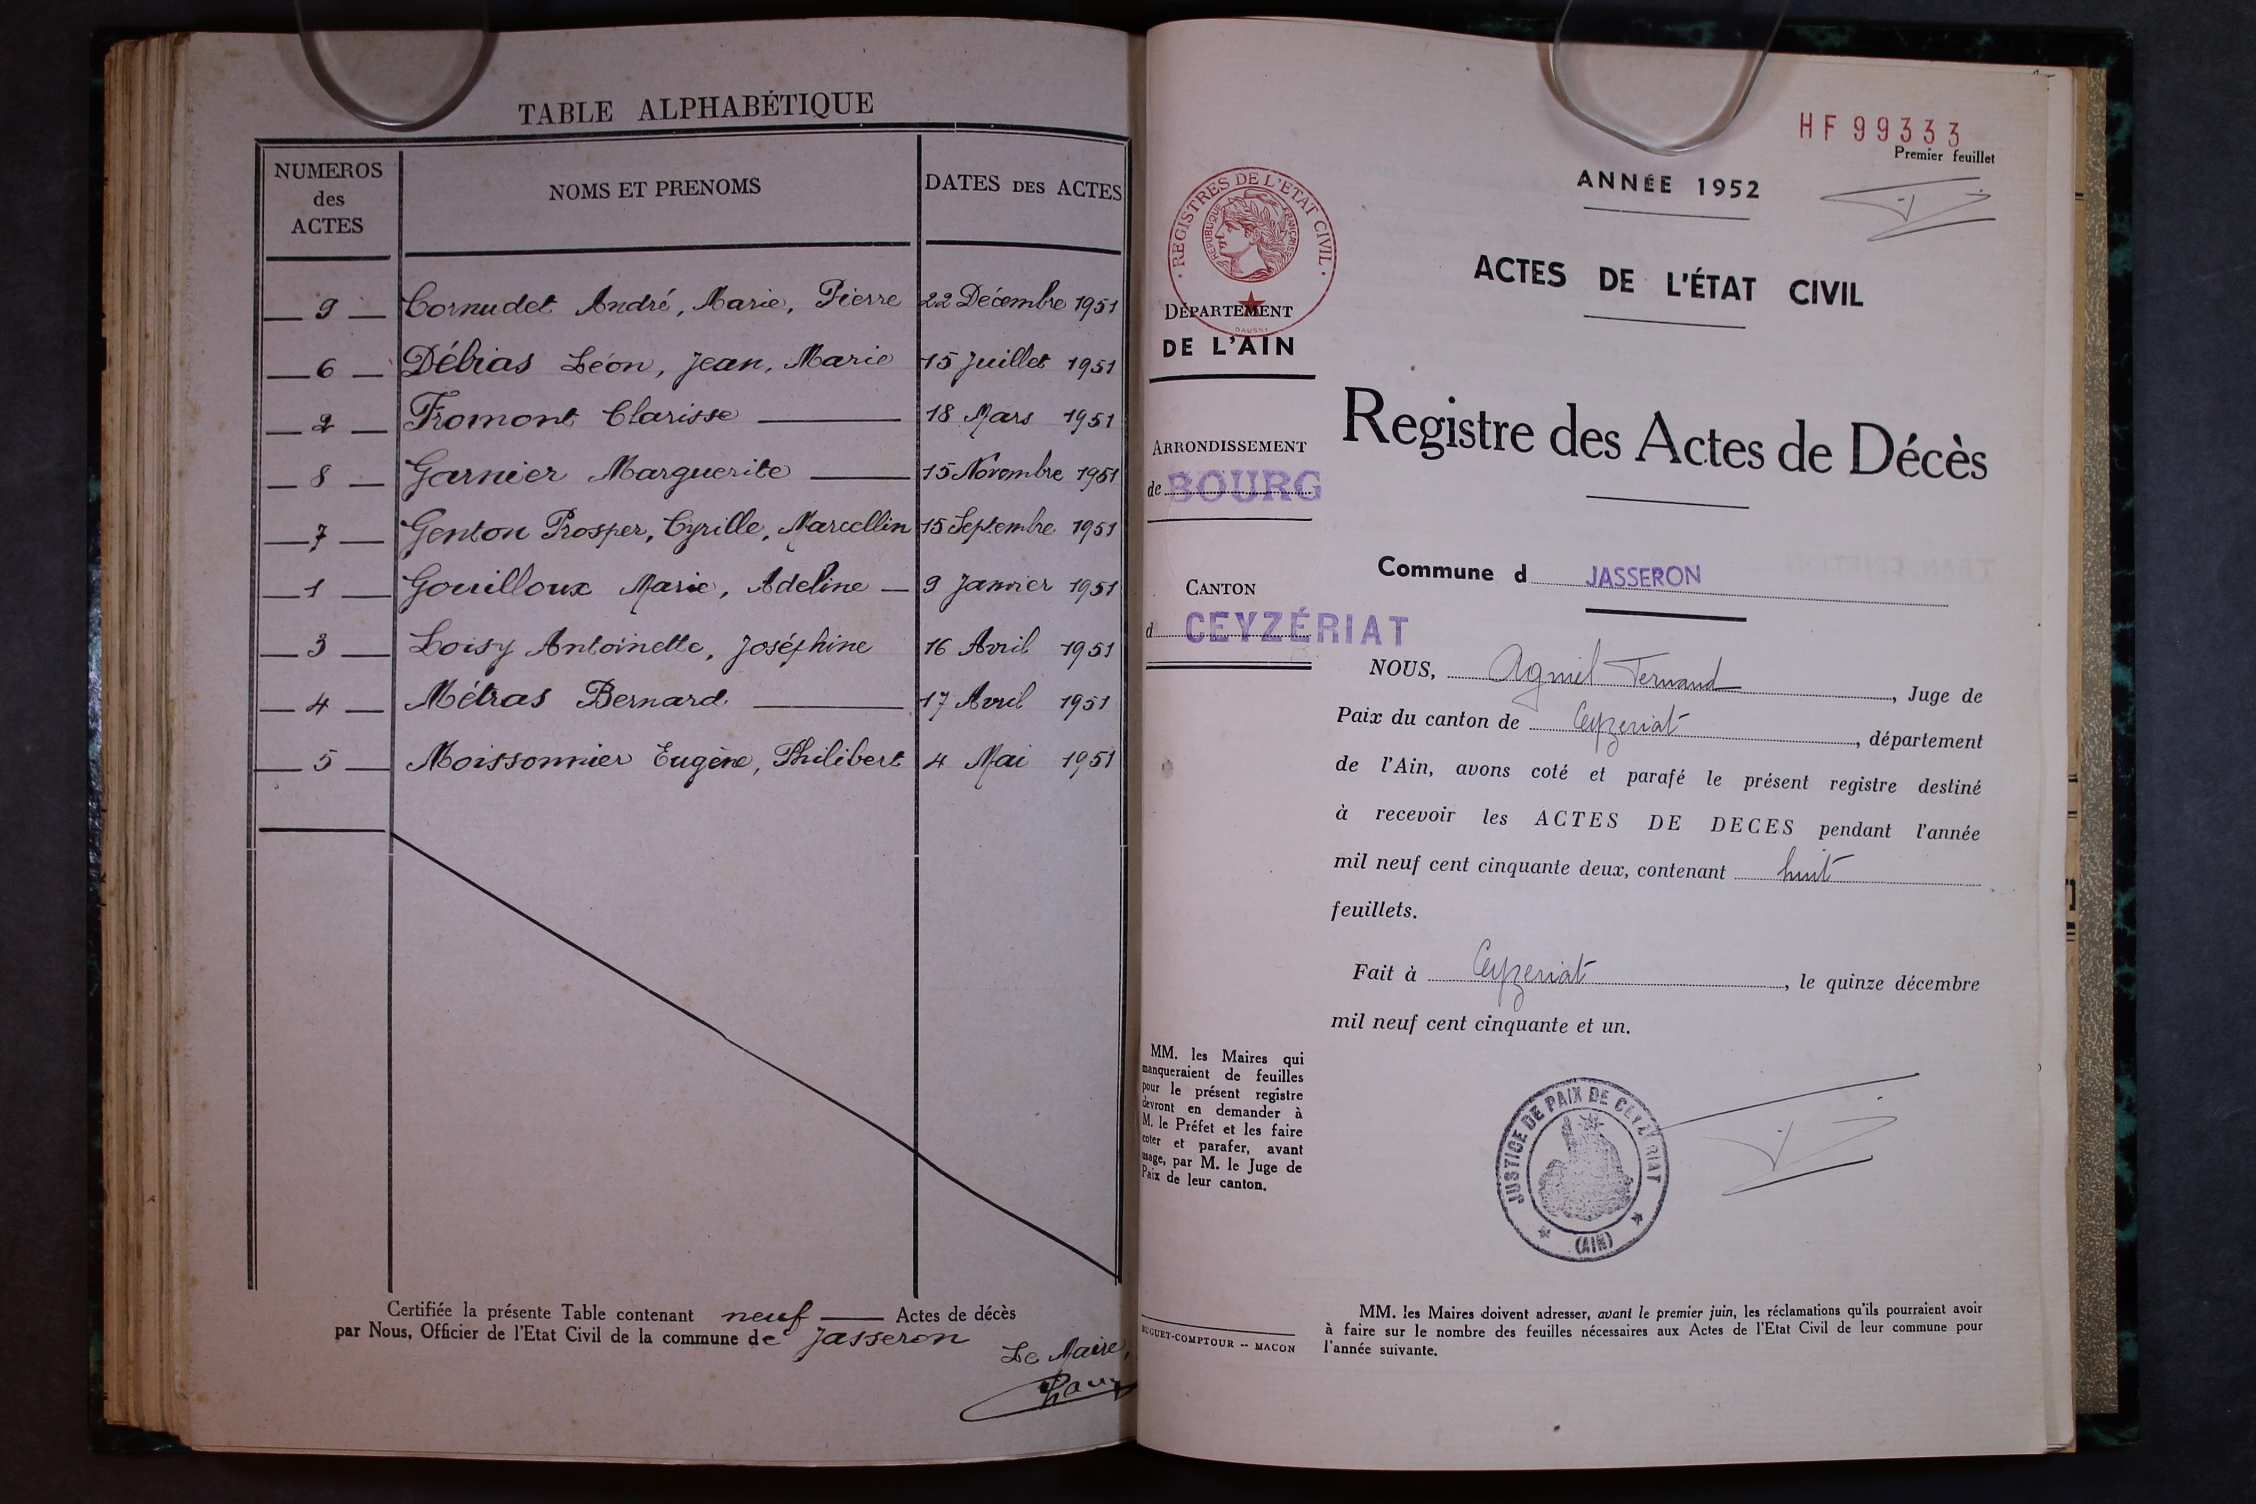 TABLE ALPHABÉTIQUE
NUMEROS
des
ACTES
NOMS ET PRENOMS
DATES DES ACTES
9 Cornudet André, Marie, Pierre 22 Décembre 1951
6 Débias Léon, Jean, Marie 15 Juillet 1951
2 Fromont Clarisse 18 Mars 1951
8 Garnier Marguerite 15 Novembre 1951
7 Genton Prosper, Cyrille, Marcellin 15 Septembre 1951
1 Gouilloux Marie, Adeline 9 Janvier 1951
3 Loisy Antoinette, Joséphine 16 Avril 1951
4 Métras Bernard 17 Avril 1951
5 Moissonnier Eugène, Philibert 4 Mai 1951
Certifiée la présente Table contenant neuf Actes de décès
par Nous, Officier de l'Etat Civil de la commune de Jasseron
Le Maire,
HF 99333
Premier feuillet
ANNÉE 1952
ACTES DE L'ÉTAT CIVIL
Registre des Actes de Décès
REGISTRES DE L'ETAT CIVIL
REPUBLIQUE FRANÇAISE
DAUSSY
DÉPARTEMENT
DE L'AIN
ARRONDISSEMENT
de BOURG
CANTON
d CEYZÉRIAT
Commune d JASSERON
NOUS, Agniel Fernand, Juge de
Paix du canton de Ceyzeriat, département
de l'Ain, avons coté et parafé le présent registre destiné
à recevoir les ACTES DE DECES pendant l'année
mil neuf cent cinquante deux, contenant huit
feuillets.
Fait à Ceyzeriat, le quinze décembre
mil neuf cent cinquante et un.
JUSTICE DE PAIX DE CEYZERIAT
(AIN)
MM. les Maires qui
manqueraient de feuilles
pour le présent registre
devront en demander à
M. le Préfet et les faire
coter et parafer, avant
usage, par M. le Juge de
Paix de leur canton.
BUGUET-COMPTOUR -- MACON
MM. les Maires doivent adresser, avant le premier juin, les réclamations qu'ils pourraient avoir
à faire sur le nombre des feuilles nécessaires aux Actes de l'Etat Civil de leur commune pour
l'année suivante.